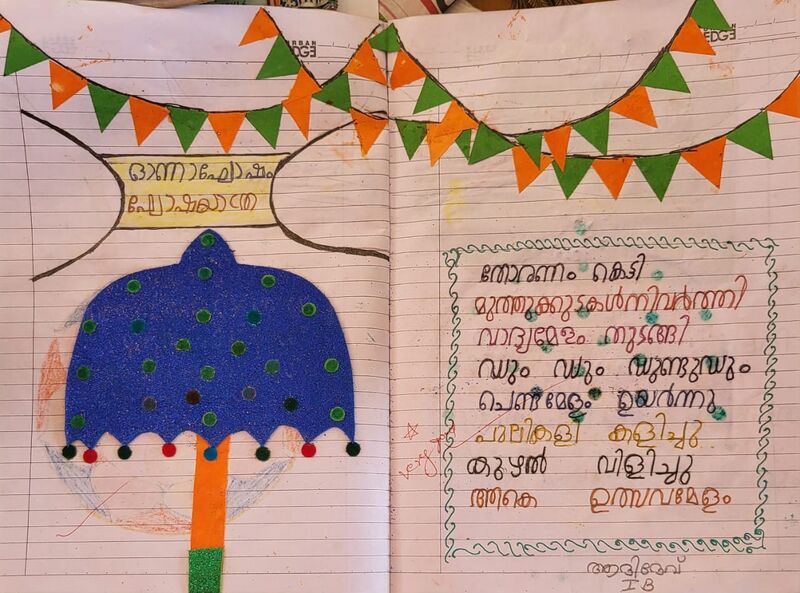 URBAN EDGE
ഓണാഘോഷം
ഘോഷയാത്ര
URBAN EDGE
തോരണം കെട്ടി
മുത്തുക്കുടകൾനിവർത്തി
വാദ്യമേളം തുടങ്ങി
ഡും ഡും ഡുണ്ടുഡും
ചെണ്ടമേളം ഉയർന്നു
പുലികളി കളിച്ചു
കുഴൽ വിളിച്ചു
ആകെ ഉത്സവമേളം
very good
ആദിദേവ്
I B